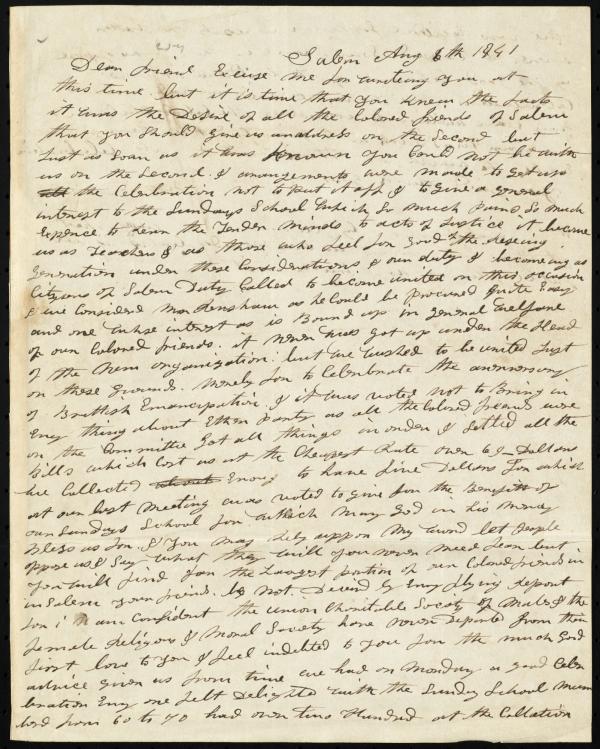 Salem Aug 6th 1841
Dear friend Excuse me for writeing you at
this time. but it is time that you knew the facts
it was the Desire of all the Colored friends of Salem
that you should give us an address on the Second but
Just as soan as it was known you Could not be with
us on the Second & arrangements were made to get up
the Celerbration not to Put it off & to give a general
interest to the Sundays School Which So much pains So much
Expence to rear the Tender minds to acts of Justice it became
us as Teachers & as those who feel for good to the riseing
Generation under these Considerations & our duty & becomeing as
Citysons of Salem Duty Called to become united on this occasion
& we Considered Mr as he Could be procured quite Easy
and one whose interest as is Bound up in general welfare
of our Colored friends. it never was got up under the Head
of the New organization. but we wished to be united Just
on these grounds. Merely for to Celerbrate the anerversary
of Brittish Emancipation. & it was voted not to Bring in
Eny thing about Ether Party as all the Colored friends were
on the Committee Got all things in order & Settled all the
Bills which Cost us at the Cheapest Rate over 60 Dollars
we Collected Enoug to have five Dollars for which
at our last Meeting was voted to give for the Benefit of
our Sundays School for which may God in his mercy
Bless us for. & you may Rely uppon My word let People
oppose us & Say What they will you never need fear but
you will find for the Largest portion of our Colored friends in
in Salem your friends. be not Deceived by Eny flying Report
for i am Confident the union Charitable Society of Males & the
female Religious & Moral Society have never Departed from their
first love to you & feel indebted to you for the much good
advice given us from time we had on Monday a good Celer
bration Eny one felt Delighted with the Sunday School Num
berd from 60 to 70 had over two Hundred at the Collation